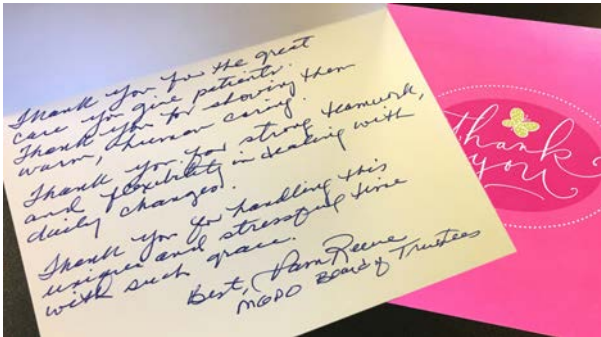 Thank you for the great
care you give patients.
Thank you for showing them
warm, human caring.
Thank you for strong teamwork,
and flexibility in dealing with
daily changes.
Thank you for handling this
unique and stressful time
with such grace.
Best, Pam Reeve
MGPO Board of Trustees
thank
you